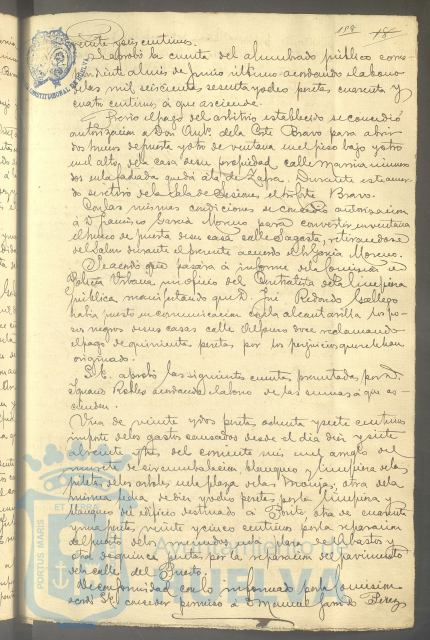 188 18
veinte y seis centimos.
Se aprobó la cuenta del alumbrado público corres-
pondiente al mes de Junio ultimo acordando el abono
de las mil seiscientas sesenta y dos pesetas cuarenta y
cuatro centimos á que asciende.
Previo el pago del arbitrio establecido se concedió
autorizacion a Don Antº de la Corte Bravo para abrir
dos huecos de puerta y otro de ventana en el piso bajo y otro
en el alto de la casa de su propiedad calle Marina numero
dos en la fachada que dá á la de Zafra. Durante este acuer-
do se retiro de la Sala de Sesiones el Sr Corte Bravo.
Con las mismas condiciones se concedio autorizacion
á D. Francisco Garcia Moreno para convertir en ventana
el hueco de puerta de su casa calle Sagasta, retirandose
del Salon durante el presente acuerdo el Sr Garcia Moreno.
Se acordó que pasára á informe de la Comision de
Policia Urbana un oficio del Contratista de la limpieza
publica manifestando que D. José Redondo Gallego
habia puesto en comunicacion con la alcantarilla los po-
zos negros de sus casas calle Alfonso doce reclamando
el pago de quinientas pesetas por los perjuicios que le han
originado.
Se aprobó las siguientes cuentas presentadas por D.
Ignacio Robles acordando el abono de las sumas á que as-
cienden.
Una de veinte y dos pesetas ochenta y siete centimos
importe de los gastos causados desde el dia diez y siete
al veinte y tres del corriente mes en el arreglo del
murete de circumbalacion, blanqueo y limpieza de las
piletas de los arboles en la plaza de las Monjas; otra de la
misma fecha de diez y ocho pesetas por la limpieza y
blanqueo del edificio destinado á Bonito, otra de cuarenta
y una pesetas veinte y cinco centimos por la reparacion
del puesto de los mercados en la plaza de Abastos y
otra de quince pesetas por la reparacion del pavimento
de la calle del Puerto.
De conformidad con lo informado por la Comision
acordó S.E. conceder permiso a D. Manuel Garrido Perez
PORTUS MARIS
AYUNTAMIENTO DE
HUELVA